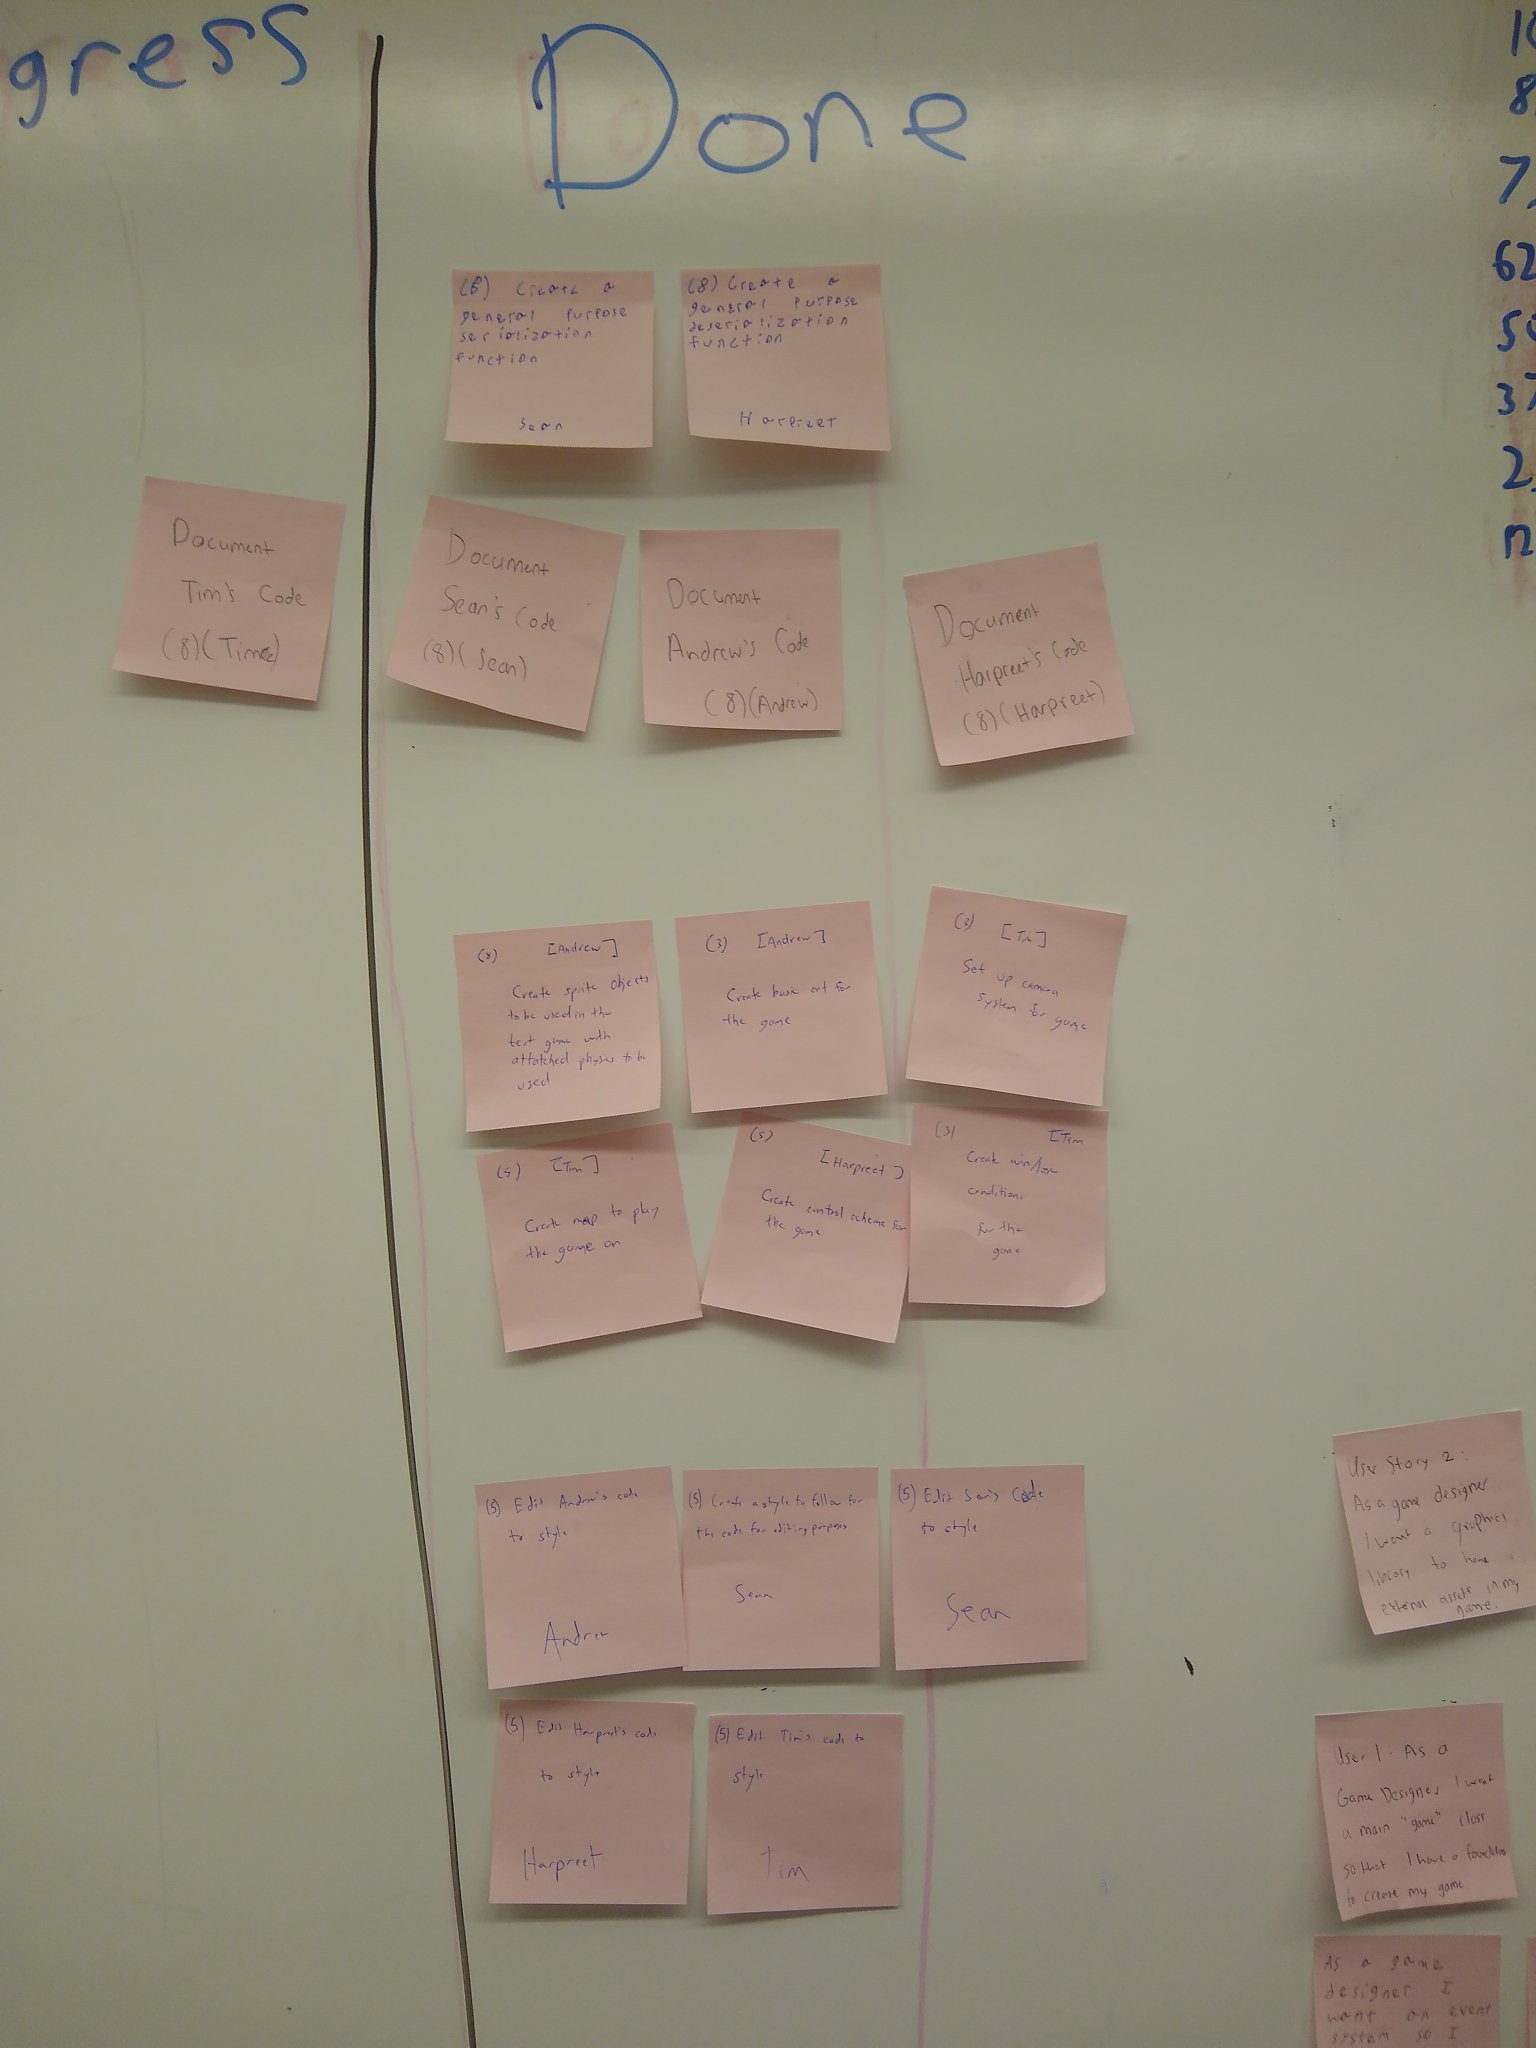 gress
Done
(8) Create a
general purpose
serialization
function
Sean
(8) Create a
general purpose
deserialization
function
Harpreet
Document
Tim's Code
(8)(Tim)
Document
Sean's Code
(8)(Sean)
Document
Andrew's Code
(8)(Andrew)
Document
Harpreet's Code
(8)(Harpreet)
(8) [Andrew]
Create sprite objects
to be used in the
test game with
attatched physics to be
used
(3) [Andrew]
Create basic art for
the game
(3) [Tim]
Set up camera
system for game
(5) [Tim]
Create map to play
the game on
(5)
[Harpreet]
Create control scheme for
the game
(3) [Tim
Create win/lose
conditions
for the
game
(5) Edit Andrew's code
to style
Andrew
(5) Create a style to follow for
the code for editing purposes
Sean
(5) Edit Sean's Code
to style
Sean
(5) Edit Harpreet's code
to style
Harpreet
(5) Edit Tim's code to
style
Tim
10
8
7
62
50
37
2
12
User Story 2:
As a game designer
I want a graphics
library to have
external assets in my
game.
User 1: As a
Game Designer I want
a main "game" class
so that I have a foundation
to create my game
As a game
designer I
want an event
system so I